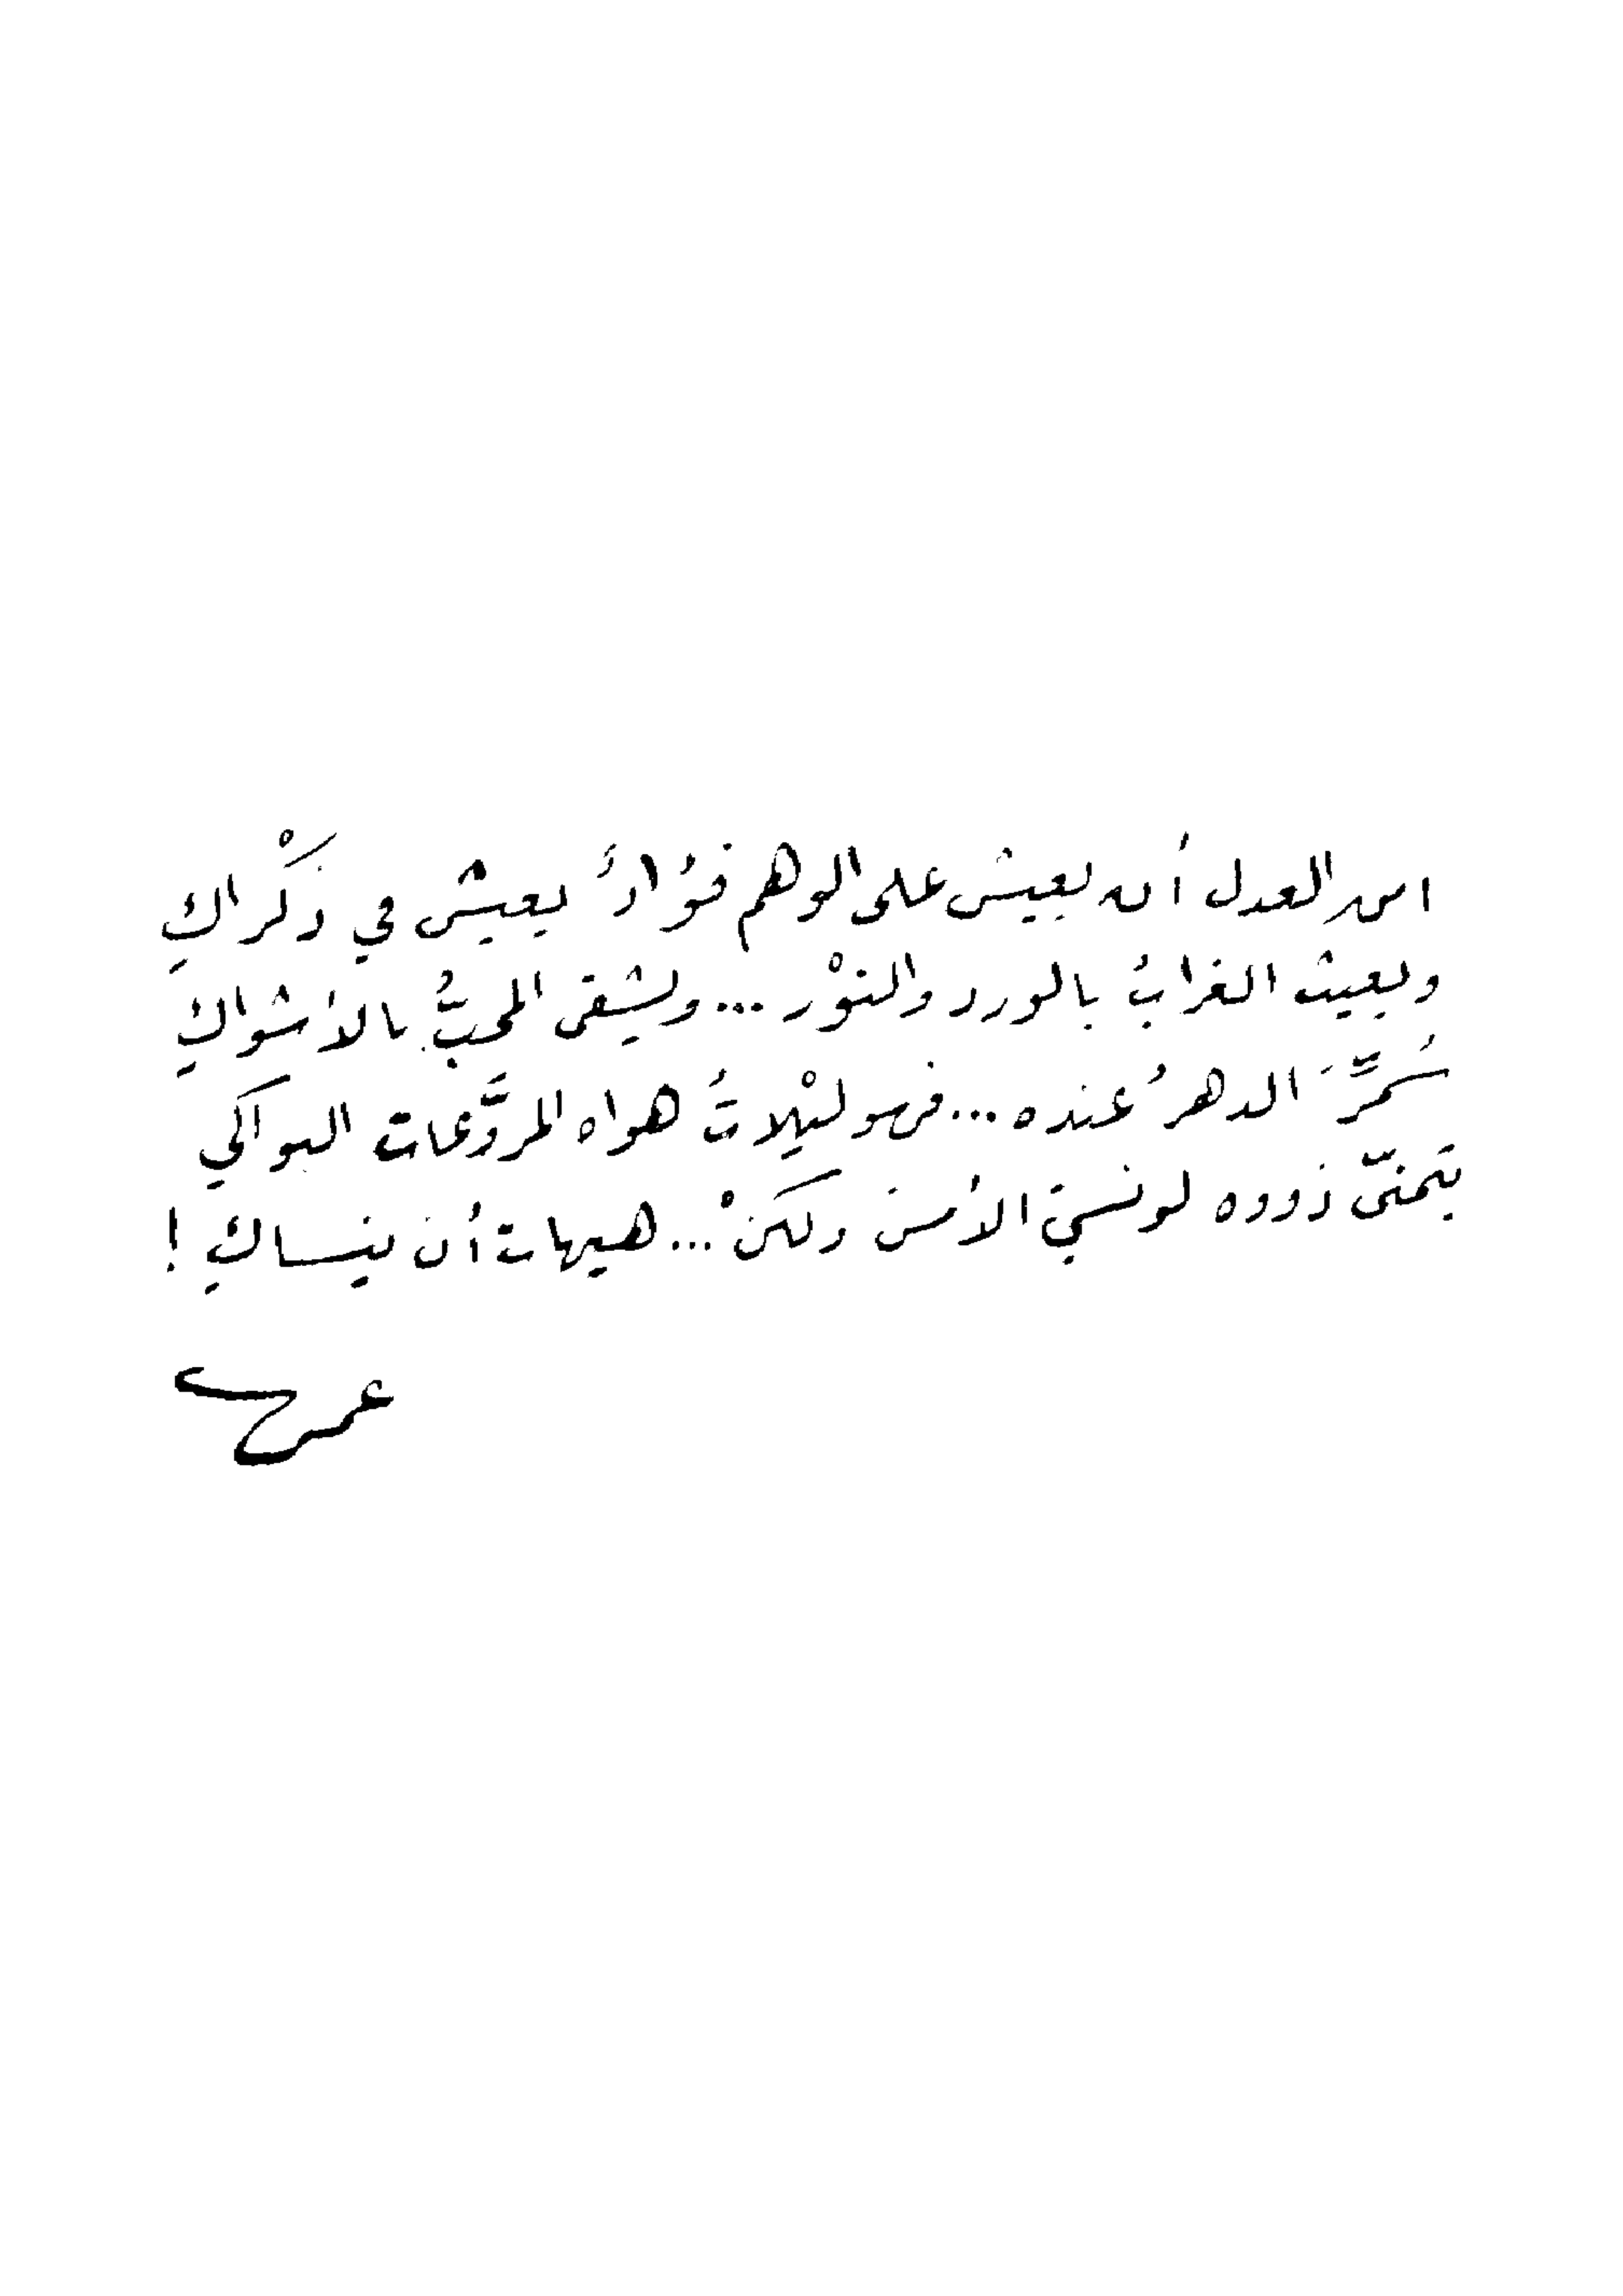 امن العدل أن يعيش على الوهم فؤادٌ يعيش في ذكْراكِ
ويعيث الغرابُ بالورد والنوْر ... ويشقى المحبُّ بالأشواكِ
سُمِّرَ الدهرُ عنده ... فهو ليْلاتُ هواه المروَّعات البواكي
يتمنّى ذووه لو نسيَ الأمسَ ولكنْ ... هيهات أن ينساكِ !